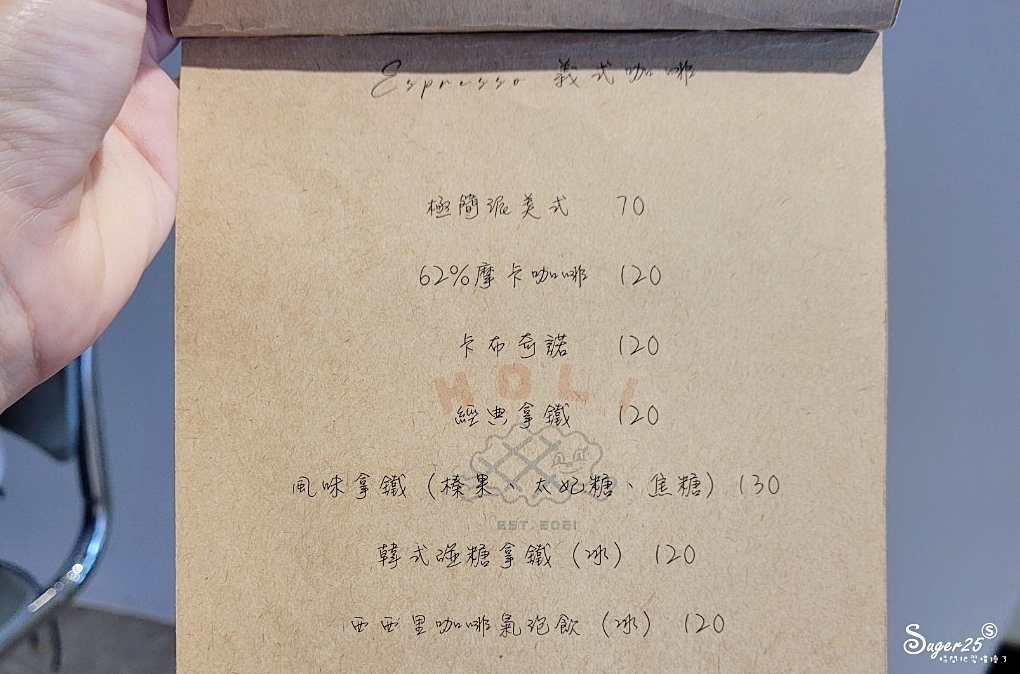 Espresso 義式咖啡
極簡派美式 70
62%摩卡咖啡 120
卡布奇諾 120
HOLI
經典拿鐵 120
風味拿鐵（榛果、太妃糖、焦糖）130
EST. 2021
韓式碰糖拿鐵（冰）120
西西里咖啡氣泡飲（冰）120
Suger25 S
時間把習慣換了